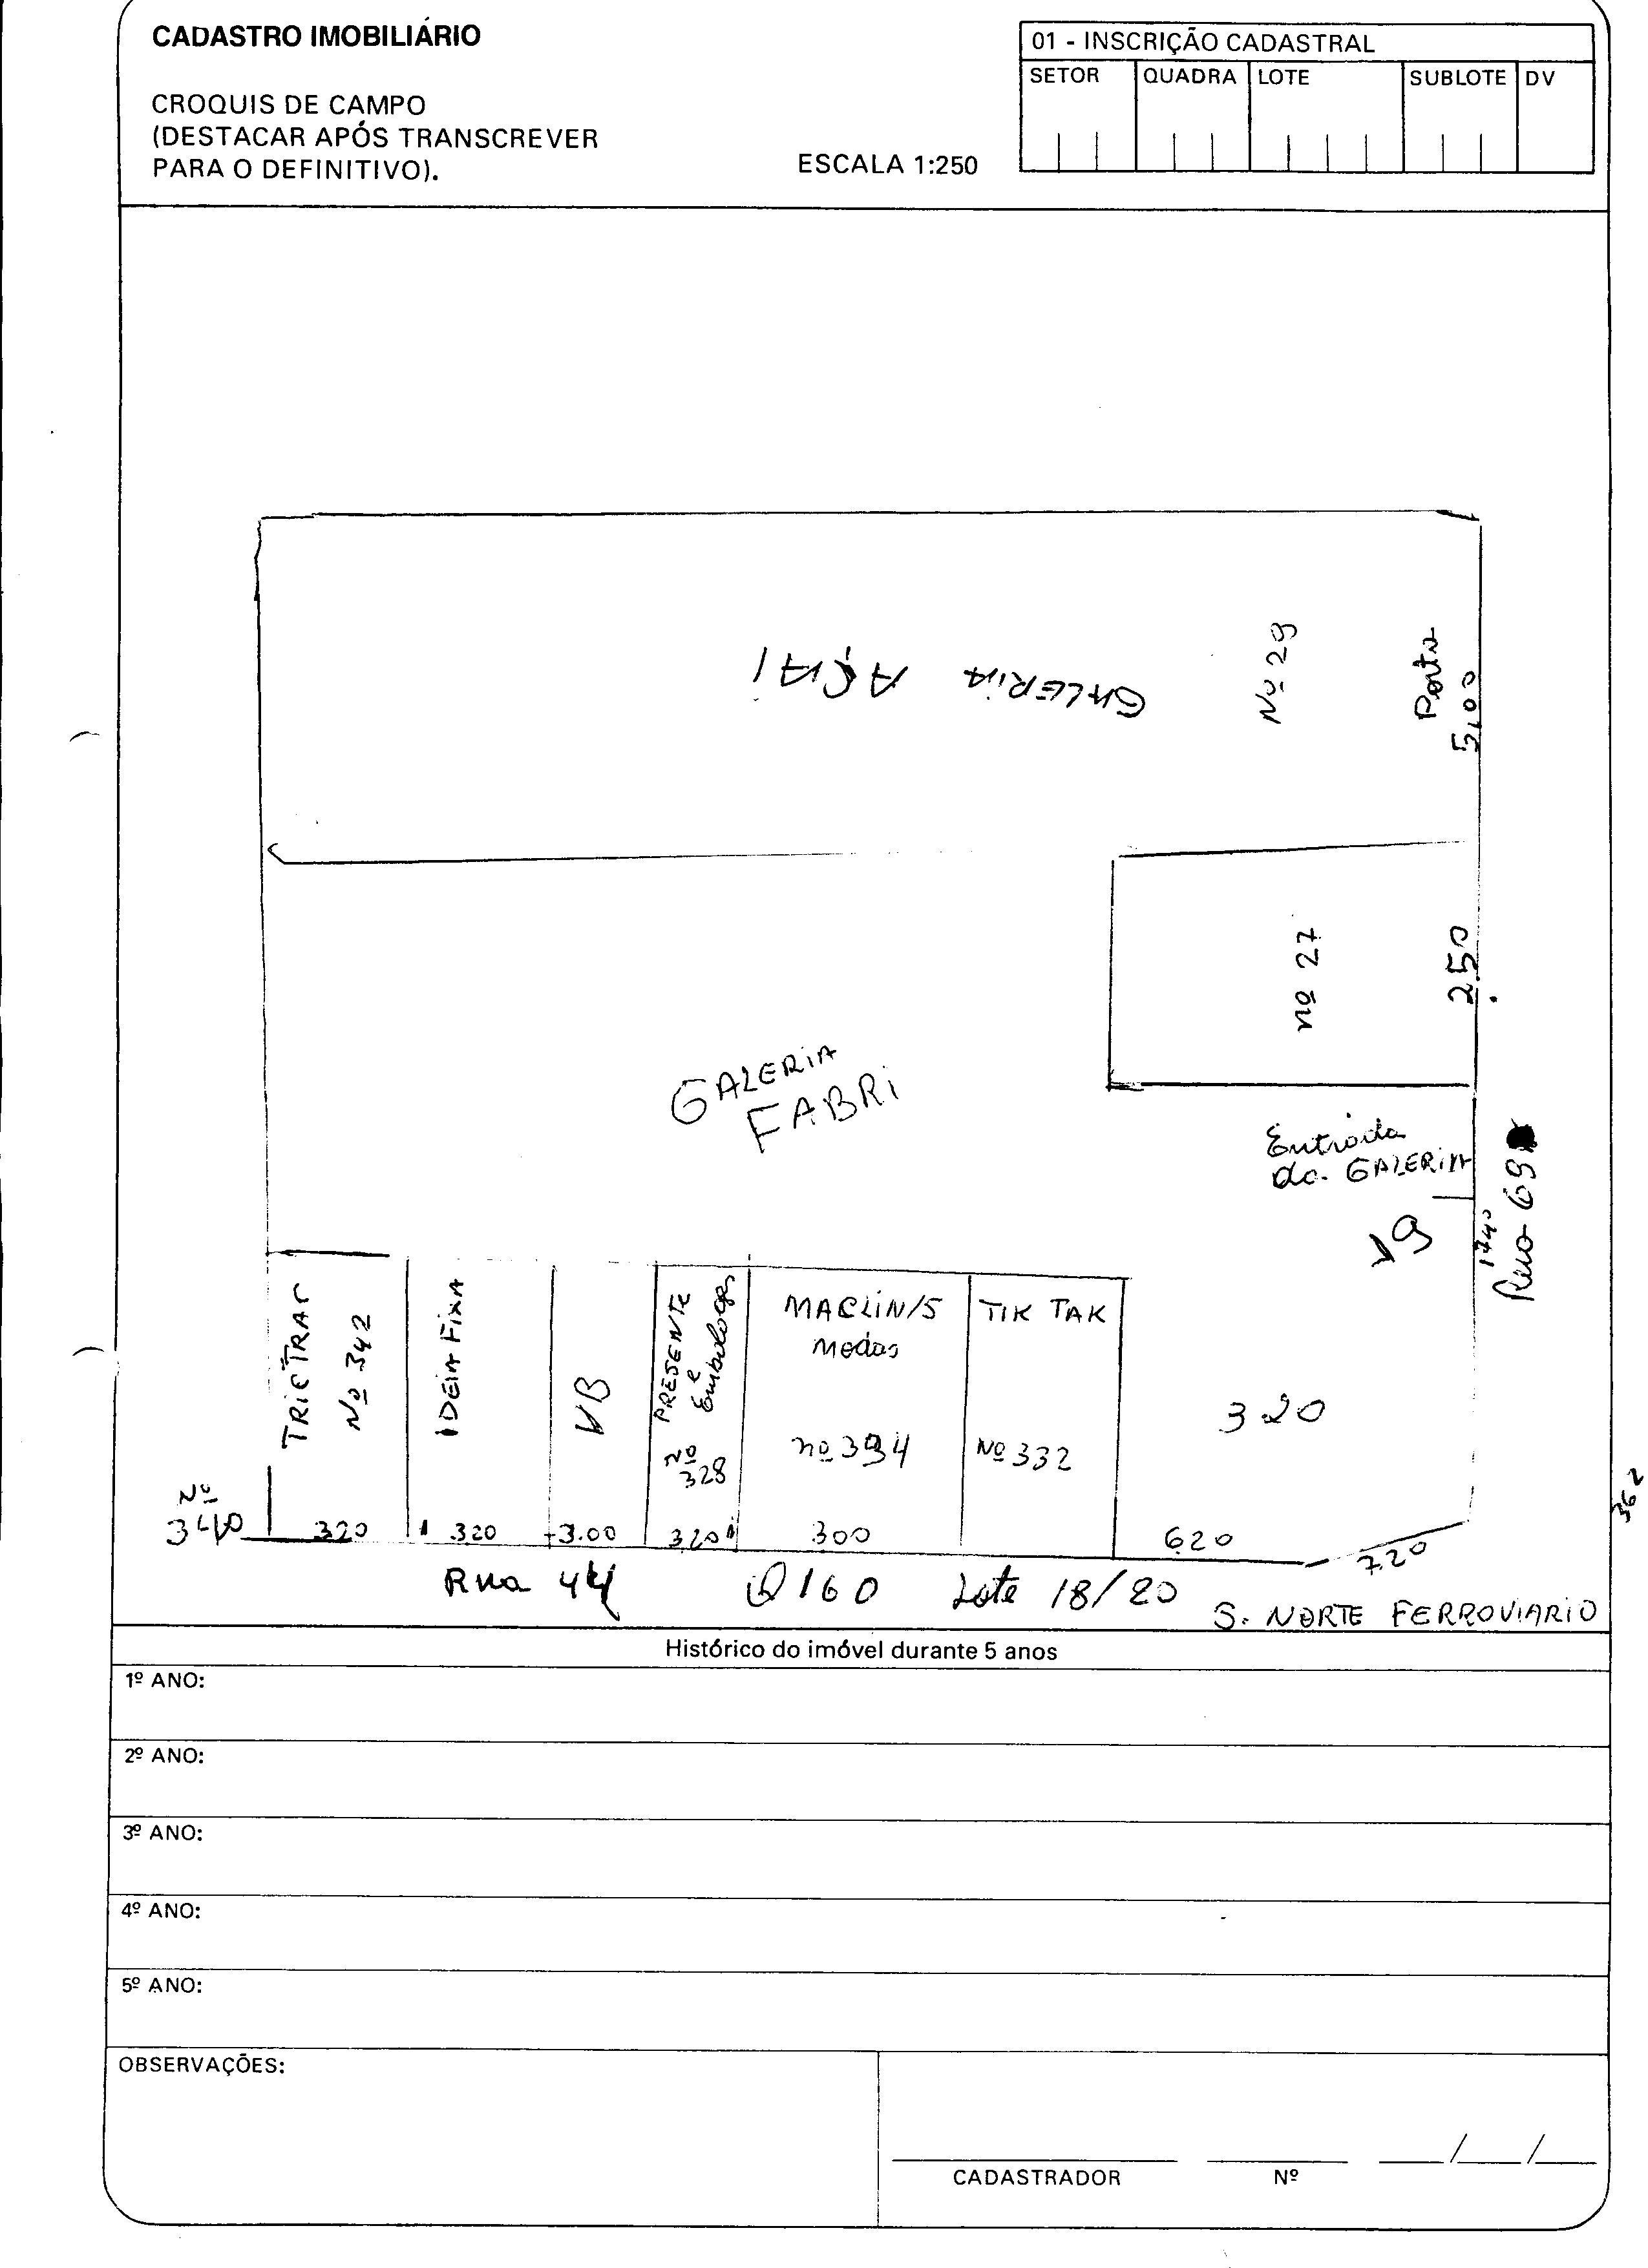 CADASTRO IMOBILIÁRIO
CROQUIS DE CAMPO
(DESTACAR APÓS TRANSCREVER
PARA O DEFINITIVO).
ESCALA 1:250
01 - INSCRIÇÃO CADASTRAL
SETOR QUADRA LOTE SUBLOTE DV
GALERIA AÇAI
Nº 29
Porta
5,00
nº 27
2.50
GALERIA
FABRI
Entrada
da GALERIA
19
1740
Rua 69
TRICTRAC
Nº 342
IDEIA FIXA
VB
PRESENTE
e
Nº
328
MACLIN/S
Modas
nº 334
TIK TAK
Nº 332
320
362
Nº
340
320
320
3.00
320
300
620
720
Rua 44 Q 160 Lote 18/20
S. NORTE FERROVIARIO
Histórico do imóvel durante 5 anos
1º ANO:
2º ANO:
3º ANO:
4º ANO:
5º ANO:
OBSERVAÇÕES:
CADASTRADOR Nº